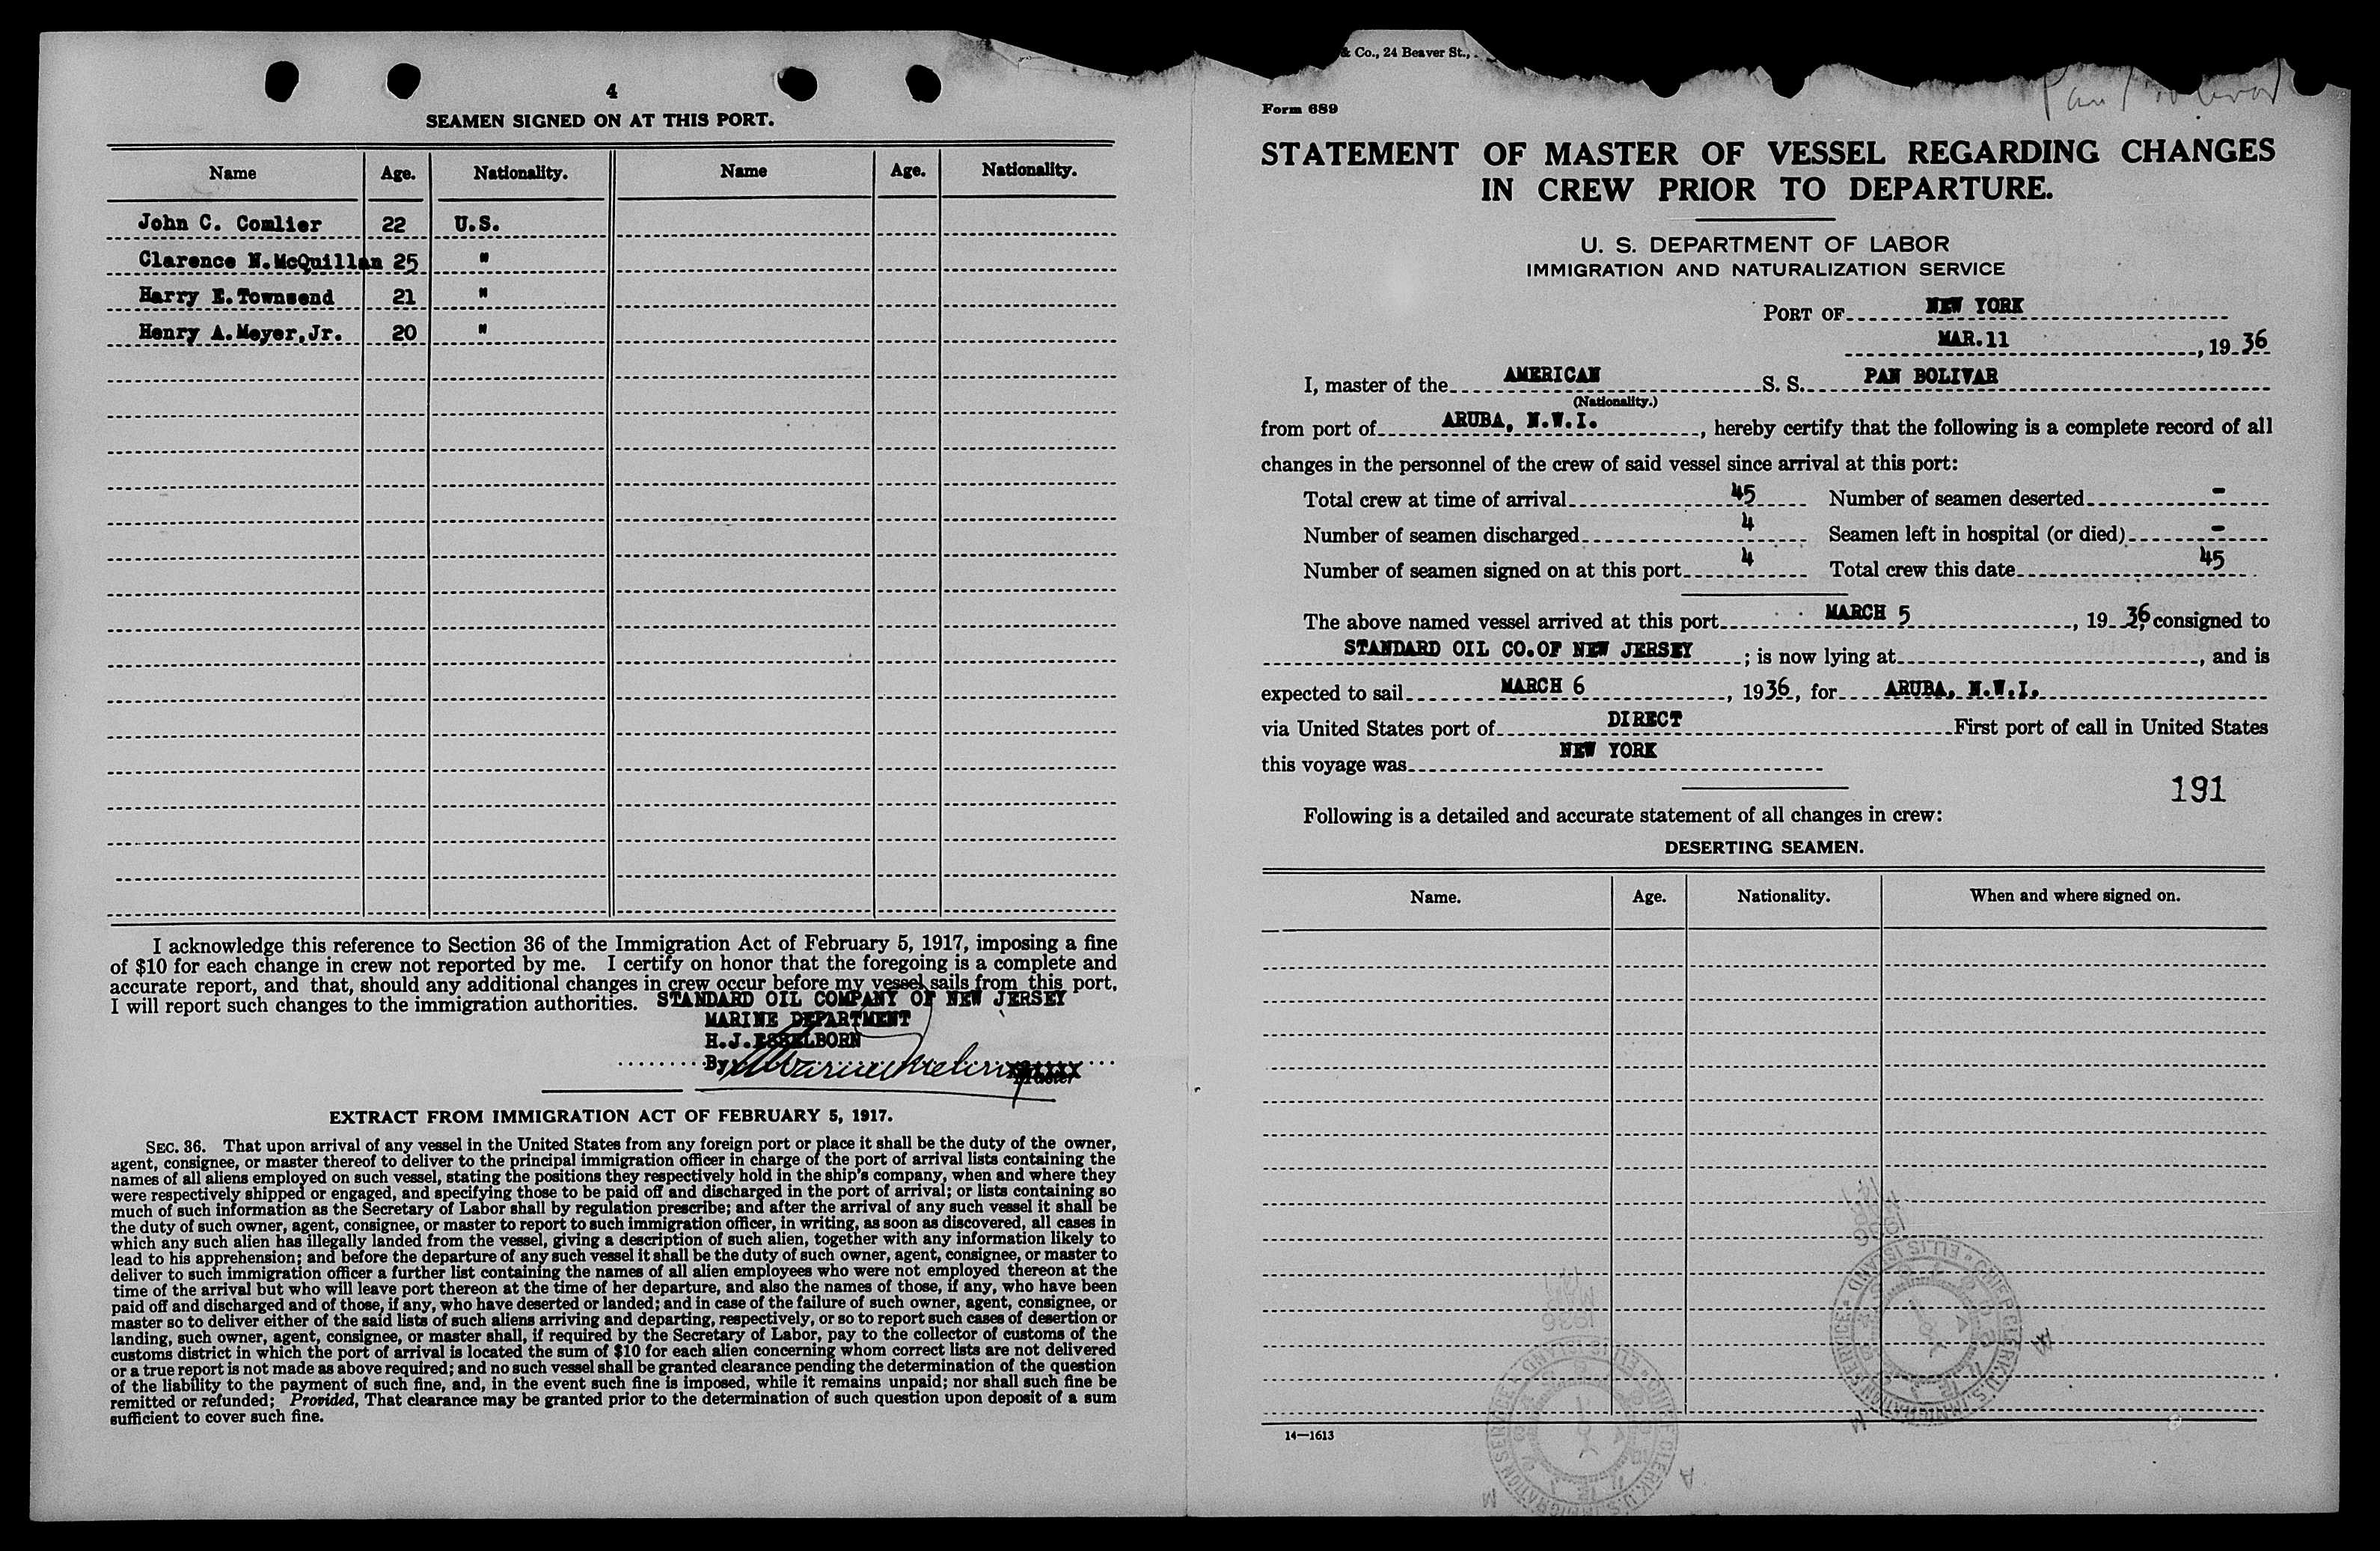 4
SEAMEN SIGNED ON AT THIS PORT.
Name Age. Nationality. Name Age. Nationality.
John C. Comlier 22 U.S.
Clarence N. McQuillan 25 "
Harry E. Townsend 21 "
Henry A. Meyer, Jr. 20 "
I acknowledge this reference to Section 36 of the Immigration Act of February 5, 1917, imposing a fine
of $10 for each change in crew not reported by me. I certify on honor that the foregoing is a complete and
accurate report, and that, should any additional changes in crew occur before my vessel sails from this port,
I will report such changes to the immigration authorities. STANDARD OIL COMPANY OF NEW JERSEY
MARINE DEPARTMENT
H.J. ESSELBORN
By
Master
EXTRACT FROM IMMIGRATION ACT OF FEBRUARY 5, 1917.
SEC. 36. That upon arrival of any vessel in the United States from any foreign port or place it shall be the duty of the owner,
agent, consignee, or master thereof to deliver to the principal immigration officer in charge of the port of arrival lists containing the
names of all aliens employed on such vessel, stating the positions they respectively hold in the ship's company, when and where they
were respectively shipped or engaged, and specifying those to be paid off and discharged in the port of arrival; or lists containing so
much of such information as the Secretary of Labor shall by regulation prescribe; and after the arrival of any such vessel it shall be
the duty of such owner, agent, consignee, or master to report to such immigration officer, in writing, as soon as discovered, all cases in
which any such alien has illegally landed from the vessel, giving a description of such alien, together with any information likely to
lead to his apprehension; and before the departure of any such vessel it shall be the duty of such owner, agent, consignee, or master to
deliver to such immigration officer a further list containing the names of all alien employees who were not employed thereon at the
time of the arrival but who will leave port thereon at the time of her departure, and also the names of those, if any, who have been
paid off and discharged and of those, if any, who have deserted or landed; and in case of the failure of such owner, agent, consignee, or
master so to deliver either of the said lists of such aliens arriving and departing, respectively, or so to report such cases of desertion or
landing, such owner, agent, consignee, or master shall, if required by the Secretary of Labor, pay to the collector of customs of the
customs district in which the port of arrival is located the sum of $10 for each alien concerning whom correct lists are not delivered
or a true report is not made as above required; and no such vessel shall be granted clearance pending the determination of the question
of the liability to the payment of such fine, and, in the event such fine is imposed, while it remains unpaid; nor shall such fine be
remitted or refunded; Provided, That clearance may be granted prior to the determination of such question upon deposit of a sum
sufficient to cover such fine.
& Co., 24 Beaver St.,
Pan Bolivar
Form 689
STATEMENT OF MASTER OF VESSEL REGARDING CHANGES
IN CREW PRIOR TO DEPARTURE.
U. S. DEPARTMENT OF LABOR
IMMIGRATION AND NATURALIZATION SERVICE
PORT OF NEW YORK
MAR. 11, 1936
I, master of the AMERICAN S. S. PAN BOLIVAR
(Nationality.)
from port of ARUBA, N.W.I., hereby certify that the following is a complete record of all
changes in the personnel of the crew of said vessel since arrival at this port:
Total crew at time of arrival 45 Number of seamen deserted -
Number of seamen discharged 4 Seamen left in hospital (or died) -
Number of seamen signed on at this port 4 Total crew this date 45
The above named vessel arrived at this port MARCH 5, 1936, consigned to
STANDARD OIL CO. OF NEW JERSEY; is now lying at , and is
expected to sail MARCH 6, 1936, for ARUBA, N.W.I.
via United States port of DIRECT First port of call in United States
this voyage was NEW YORK
191
Following is a detailed and accurate statement of all changes in crew:
DESERTING SEAMEN.
Name. Age. Nationality. When and where signed on.
14—1613